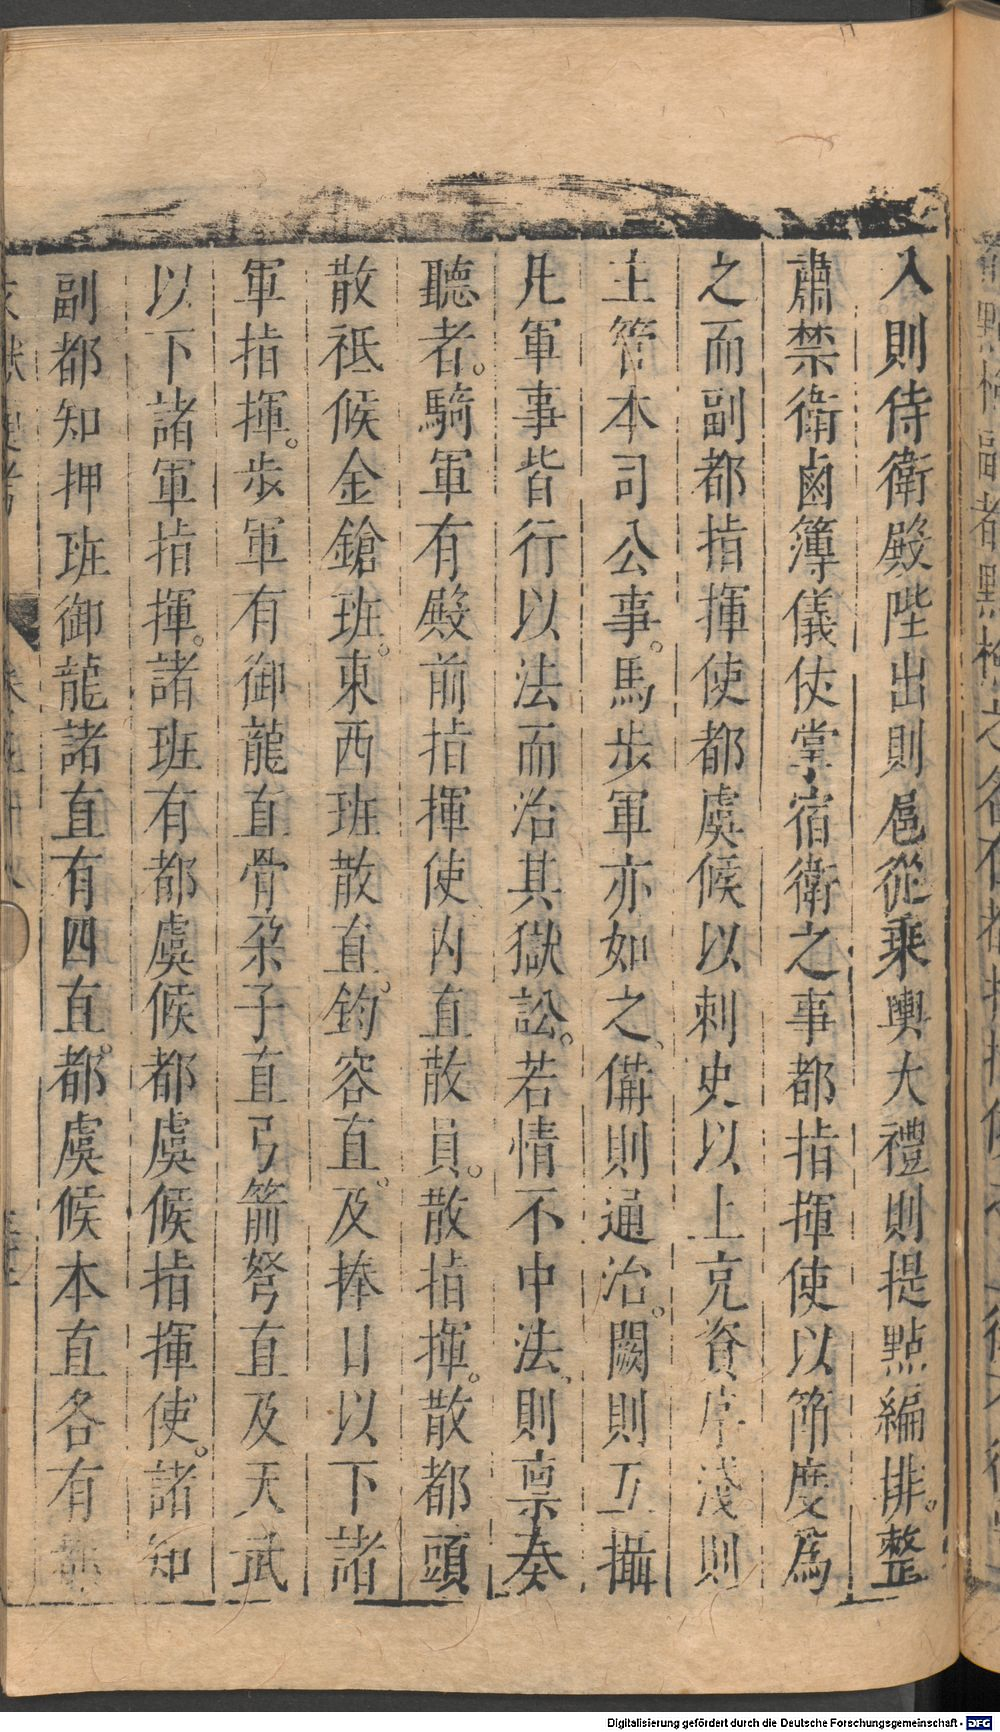 入則侍衛殿陛出則扈從乘輿大禮則提點編排。整
肅禁衛鹵簿儀仗掌宿衛之事都指揮使以節度為
之而副都指揮使都虞候以刺史以上充資序淺則
主管本司公事。馬步軍亦如之、備則通治。闕則互攝
凡軍事皆行以法而治其獄訟。若情不中法、則稟奏
聽者。騎軍有殿前指揮使內直散員。散指揮。散都頭
散祗候金鎗班。東西班散直。鈞容直。及捧日以下諸
軍指揮。步軍有御龍直骨朶子直弓箭弩直及天武
以下諸軍指揮。諸班有都虞候都虞候指揮使。諸知
副都知押班御龍諸直有四直。都虞候本直各有都
Digitalisierung gefördert durch die Deutsche Forschungsgemeinschaft - DFG